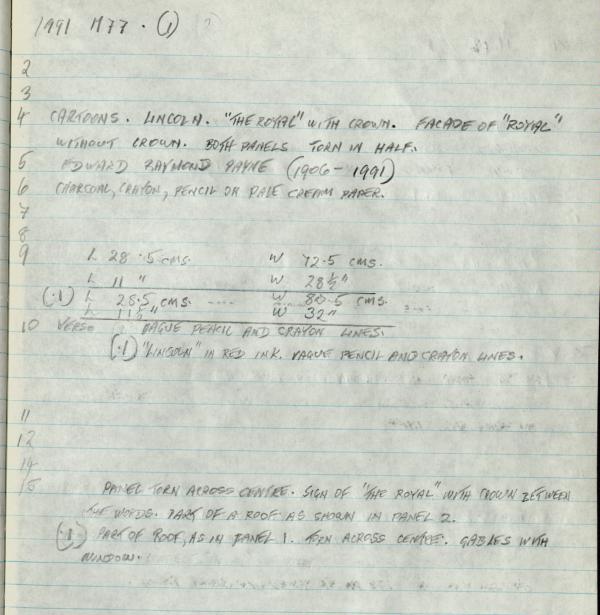 1991 H77 . (1)
2
3
4 CARTOONS. LINCOLN. "THE ROYAL" WITH CROWN. FACADE OF "ROYAL"
WITHOUT CROWN. BOTH PANELS TORN IN HALF.
5 EDWARD RAYMOND PAYNE (1906-1991)
6 CHARCOAL, CRAYON, PENCIL ON PALE CREAM PAPER.
7
8
9 L 28.5 cms. W 72.5 cms.
L 11 " W 28½"
(.1) L 28.5 cms. .... W 80.5 cms.
L 11½" W 32"
10 VERSO VAGUE PENCIL AND CRAYON LINES.
(.1) "LINCOLN" IN RED INK. VAGUE PENCIL AND CRAYON LINES.
11
12
14
15 PANEL TORN ACROSS CENTRE. SIGN OF "THE ROYAL" WITH CROWN BETWEEN
THE WORDS. PART OF A ROOF AS SHOWN IN PANEL 2.
(.1) PART OF ROOF, AS IN PANEL 1. TORN ACROSS CENTRE. GABLES WITH
WINDOW.